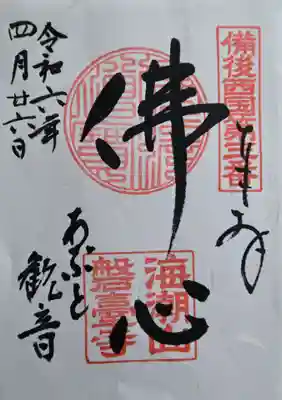 備後西國第三番
佛心
海潮山
磐臺寺
令和六年
四月廿六日
あぶと
観音